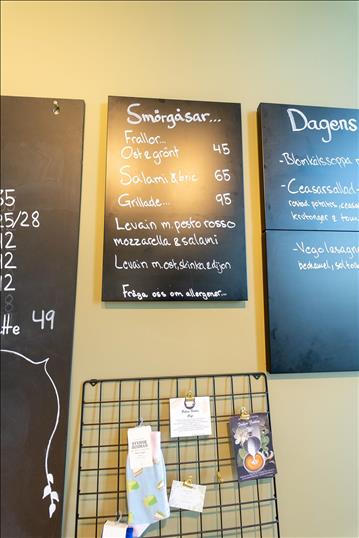 35
25/28
12
12
12
8
atte 49
Smörgåsar...
Frallor...
Ost & grönt 45
Salami & brie 65
Grillade... 95
Levain m. pesto rosso
mozzarella & salami
Levain m. ost, skinka & dijon
Fråga oss om allergener...
Dagens
-Blomkålssoppa
-Ceasarsallad-
rostad potatis, ceasa
krutonger & tom
-Vegolasagne
bechamel, sallad